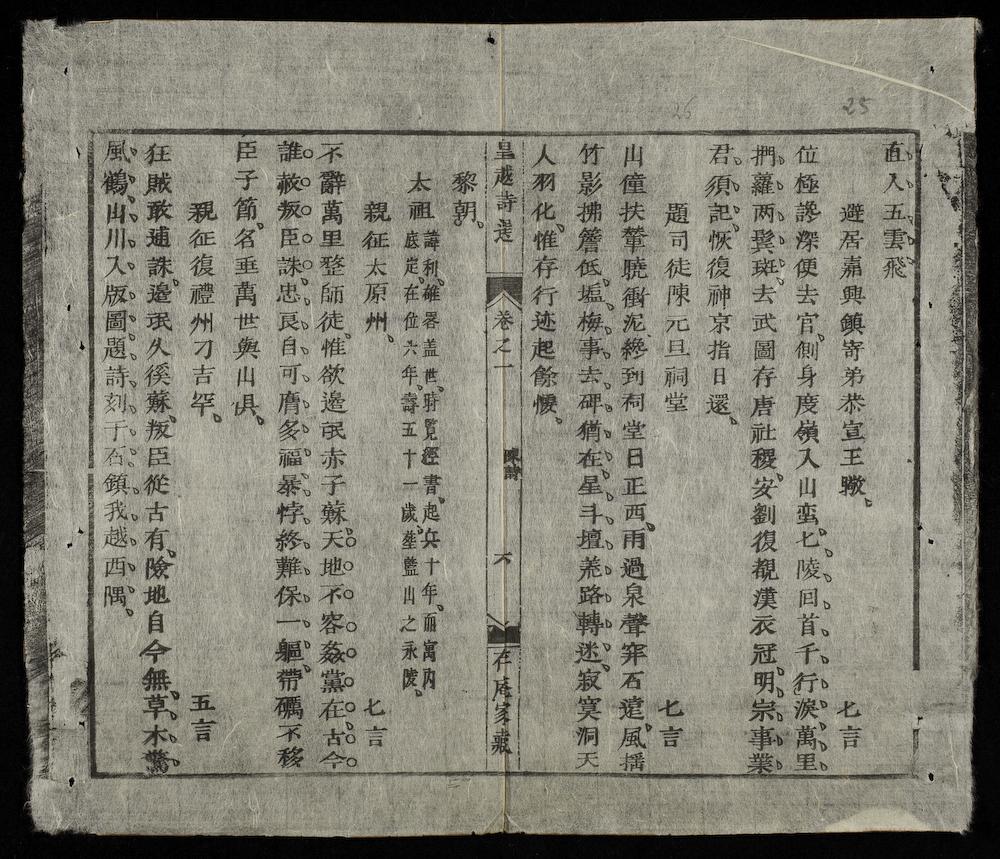 25
26
直入五雲飛
避居嘉興鎮寄弟恭宣王曔 七言
位極謗深便去官側身度嶺入山蛮七陵回首千行淚萬里
捫蘿兩鬢斑去武圖存唐社稷安劉復覩漢衣冠明宗事業
君須記恢復神京指日還
題司徒陳元旦祠堂 七言
山僮扶輦曉衝泥纔到祠堂日正西雨過泉聲穿石遠風揺
竹影拂簷低塩梅事去碑猶在星斗壇荒路轉迷寂寞洞天
人羽化惟存行迹起餘悽
皇越詩選 卷之一 陳詩 六 存庵家藏
黎朝
太祖 諱利雄畧盖世博覧經書起兵十年而寓内
底定在位六年壽五十一歲塟藍山之永陵
親征太原州 七言
不辭萬里整師徒惟欲邊氓赤子蘇天地不容姦黨在古今
誰赦叛臣誅忠良自可膺多福暴悖終難保一軀帶礪不移
臣子節名垂萬世與山俱
親征復禮州刁吉罕 五言
狂賊敢逋誅邊氓久徯蘇叛臣從古有險地自今無草木驚
風鶴山川入版圖題詩刻于石鎮我越西隅